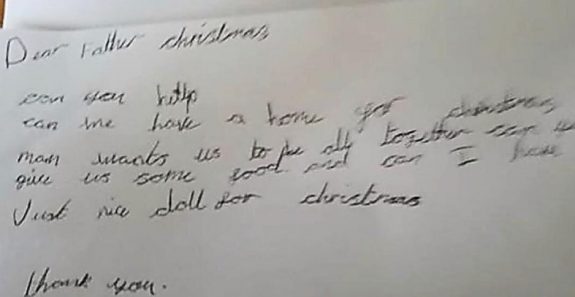 Dear Father christmas
can you help
can we have a home for christmas
mam wants us to be all together can u
give us some food and can I have
Just nice doll for christmas
thank you.